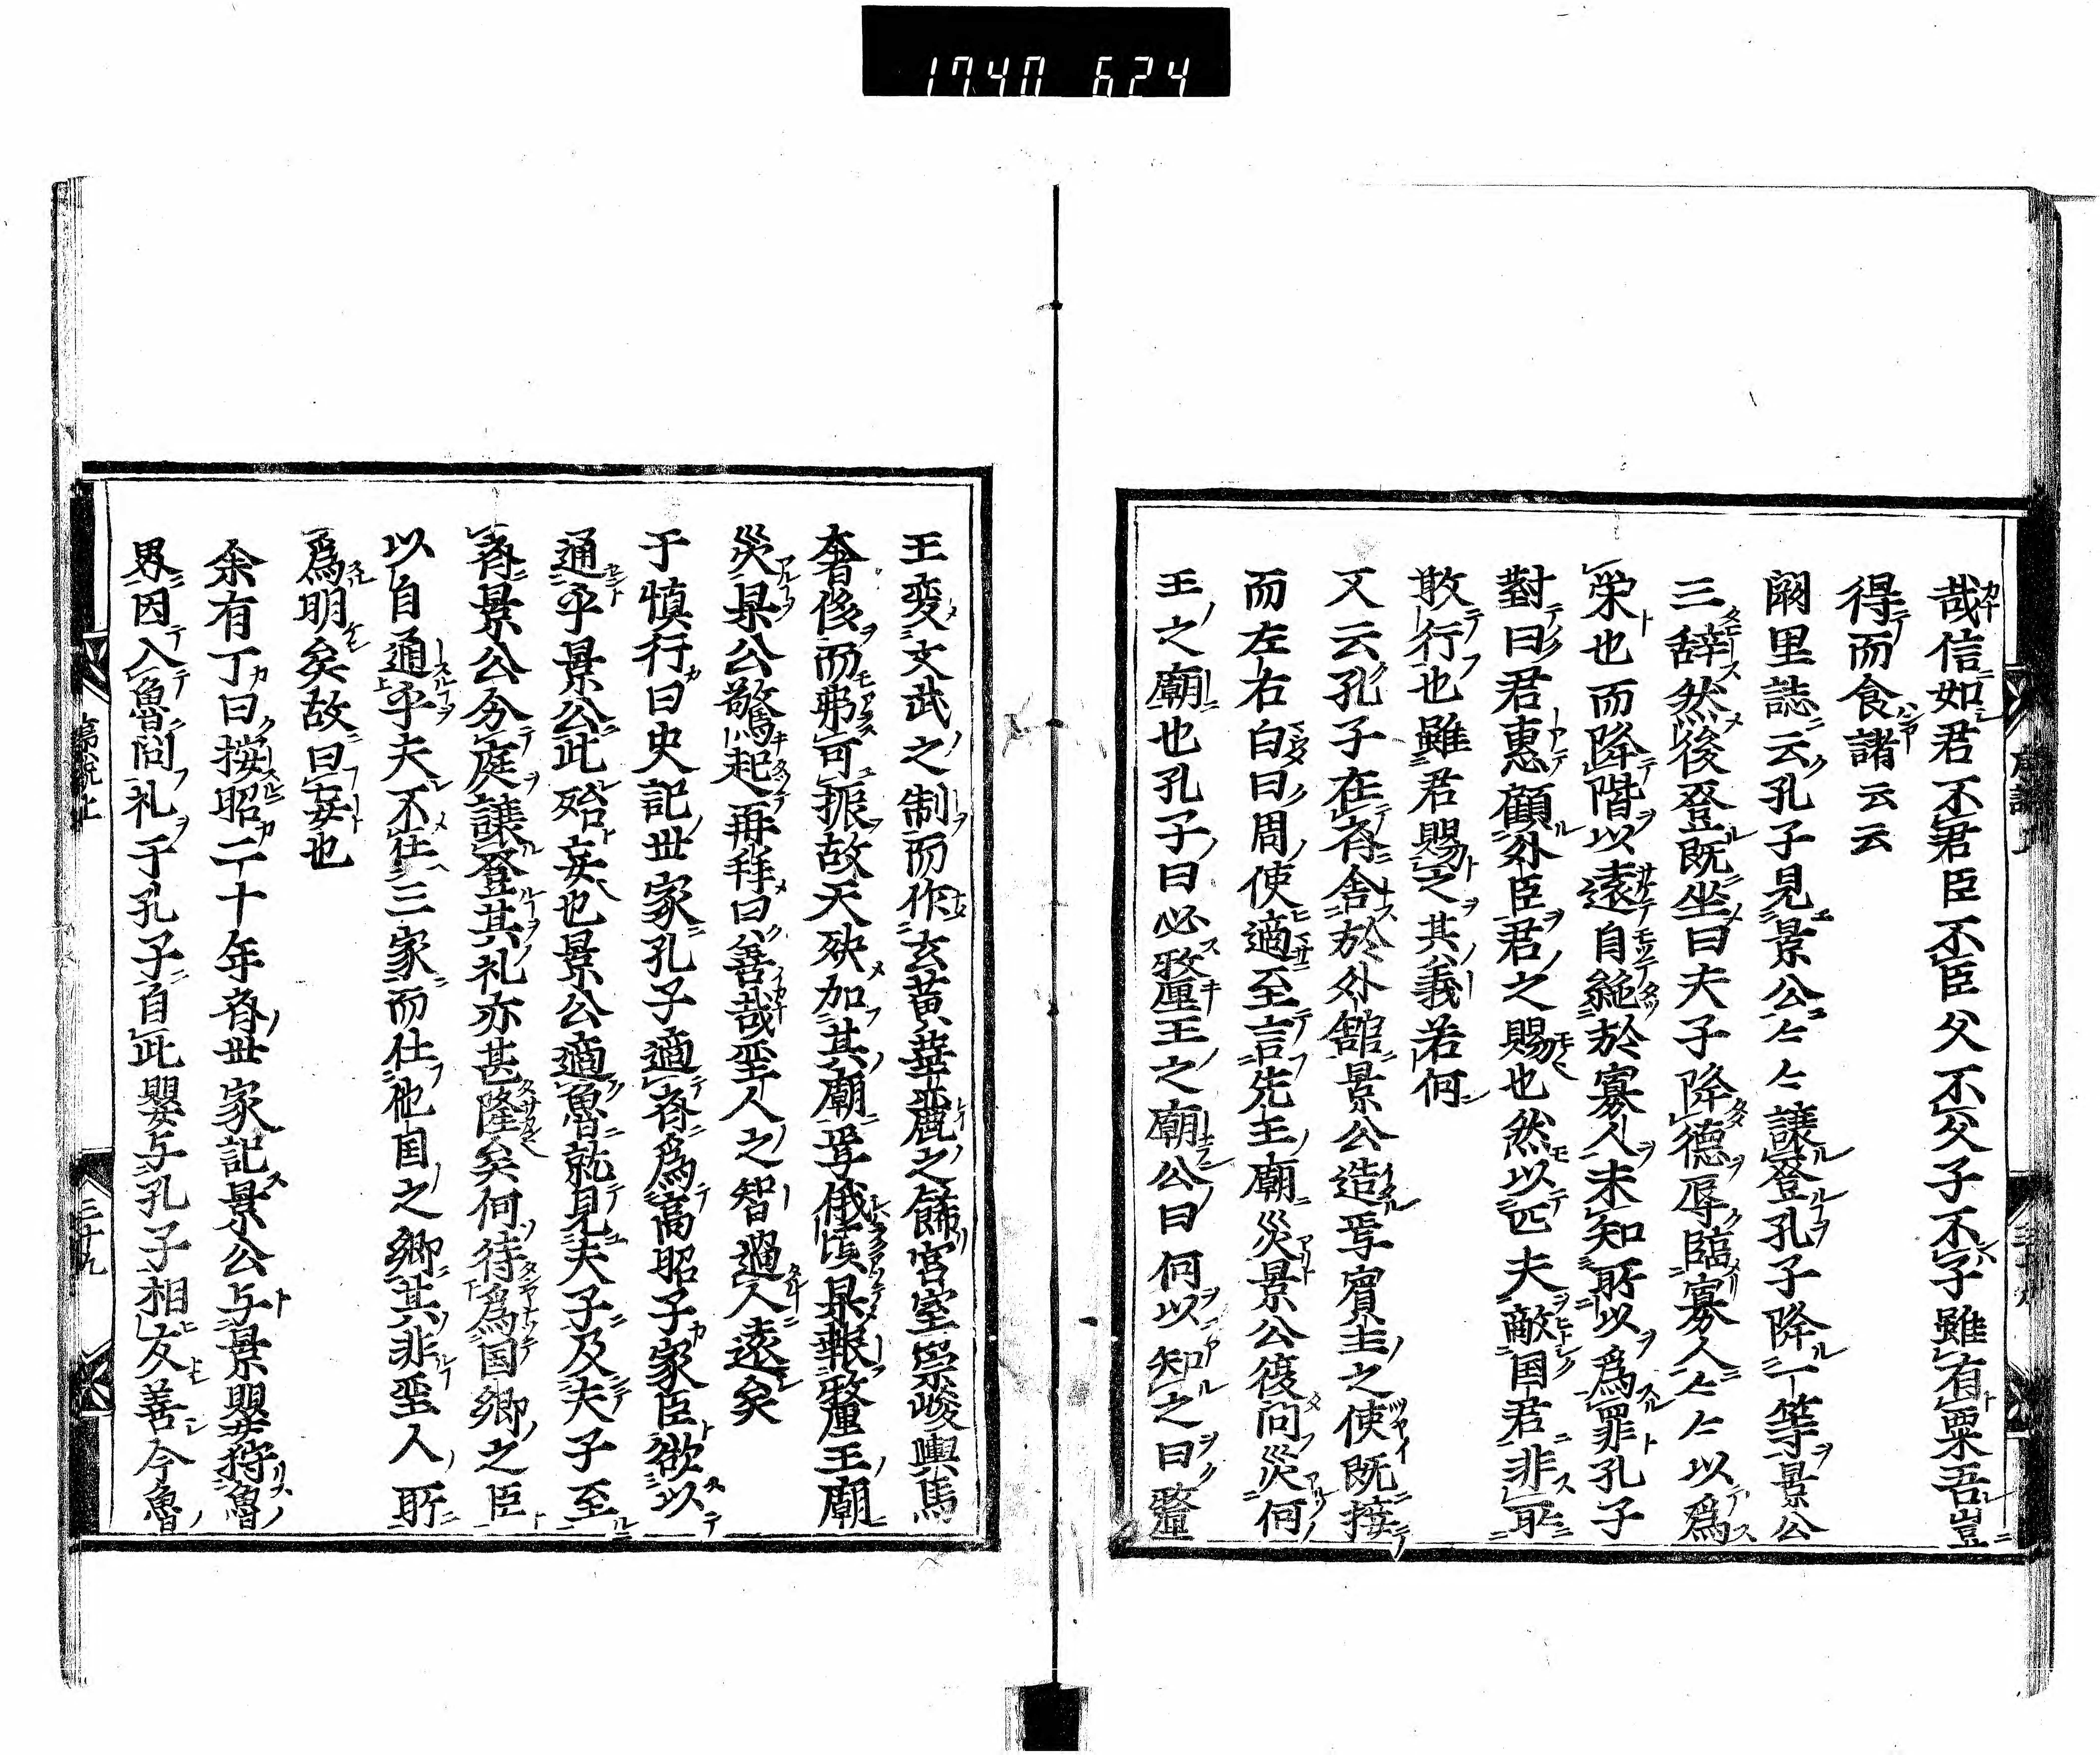 1740 624
哉信如君不君臣不臣父不父子不子雖有粟吾豈
得而食諸云云
闕里誌云孔子見景公々々讓登孔子降一等景公
三辞然後登既坐曰夫子降德辱臨寡人々々以爲
栄也而降階以遠自絶於寡人未知所以爲罪孔子
對曰君惠顧外臣君之賜也然以匹夫敵国君非所
敢行也雖君賜之其義若何
又云孔子在斉舎於外舘景公造焉賓主之使既接
而左右白曰周使適至言先王廟災景公復問災何
王之廟也孔子曰必釐王之廟公曰何以知之曰釐
王変文武之制而作玄黄華麗之餙宮室崇峻輿馬
奢侈而弗可振故天殃加其廟焉俄頃果報釐王廟
災果公驚起再拜曰善哉聖人之智過人遠矣
于慎行曰史記世家孔子適斉爲高昭子家臣欲以
通乎景公此殆妄也景公適魯就見夫子及夫子至
斉景公分庭讓登其礼亦甚隆矣何待爲国卿之臣
以自通乎夫不仕三家而仕他国之卿其非聖人所
爲明矣故曰妄也
余有丁曰按昭二十年斉世家記景公与景嬰狩魯
界因入魯問礼于孔子自此嬰与孔子相友善今魯
三十九